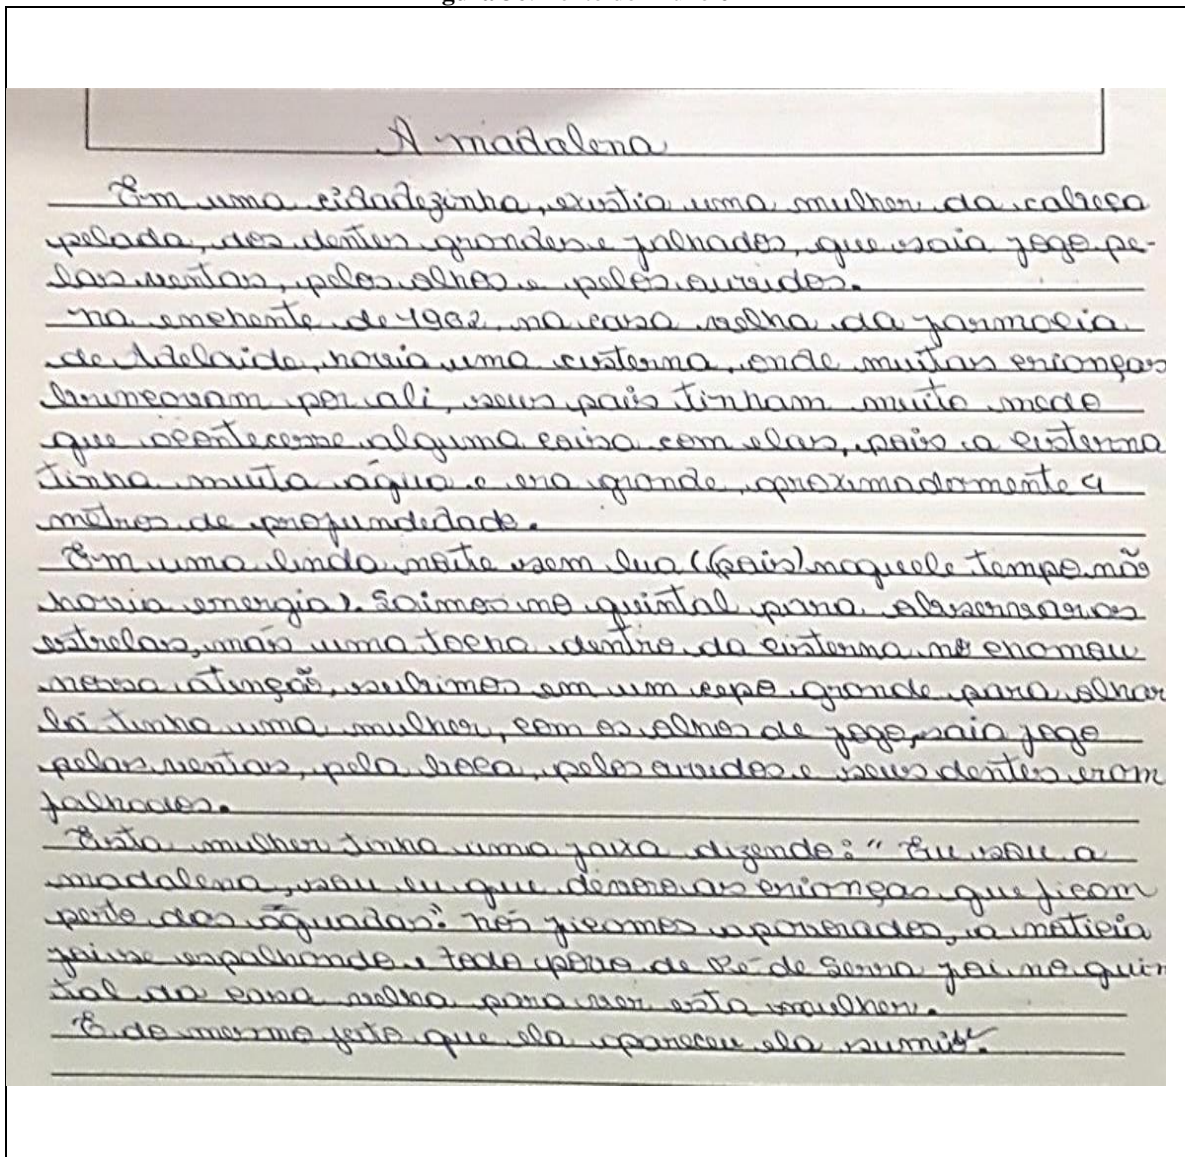 A madalena
Em uma cidadezinha, existia uma mulher da cabeça
pelada, dos dentes grandes e falhados, que saia fogo pe-
las ventas, pelos olhos e pelos ouvidos.
na enchente de 1982, na casa velha da farmacia
de Adelaide, havia uma cisterna, onde muitas crianças
brincavam por ali, seus pais tinham muito medo
que acontecesse alguma coisa com elas, pois a cisterna
tinha muita água e era grande, aproximadamente 4
metros de profundedade.
Em uma linda noite sem lua ((pois) naquele tempo não
havia energia). Saimos no quintal para observar as
estrelas, mas uma tocha dentro da cisterna chamou
nossa atenção, subimos em um cepo grande para olhar
lá tinha uma mulher, com os olhos de fogo, saia fogo
pelas ventas, pela boca, pelos ouvidos e seus dentes eram
falhados.
Esta mulher tinha uma faixa dizendo: " Eu sou a
madalena, sou eu que devoro as crianças que ficam
perto das águadas". nós ficamos apavorados, a noticia
foi se espalhando e todo povo de Pé de Serra foi no quin
tal da casa velha para ver esta mulher.
E do mesmo jeito que ela apareceu ela sumiu.